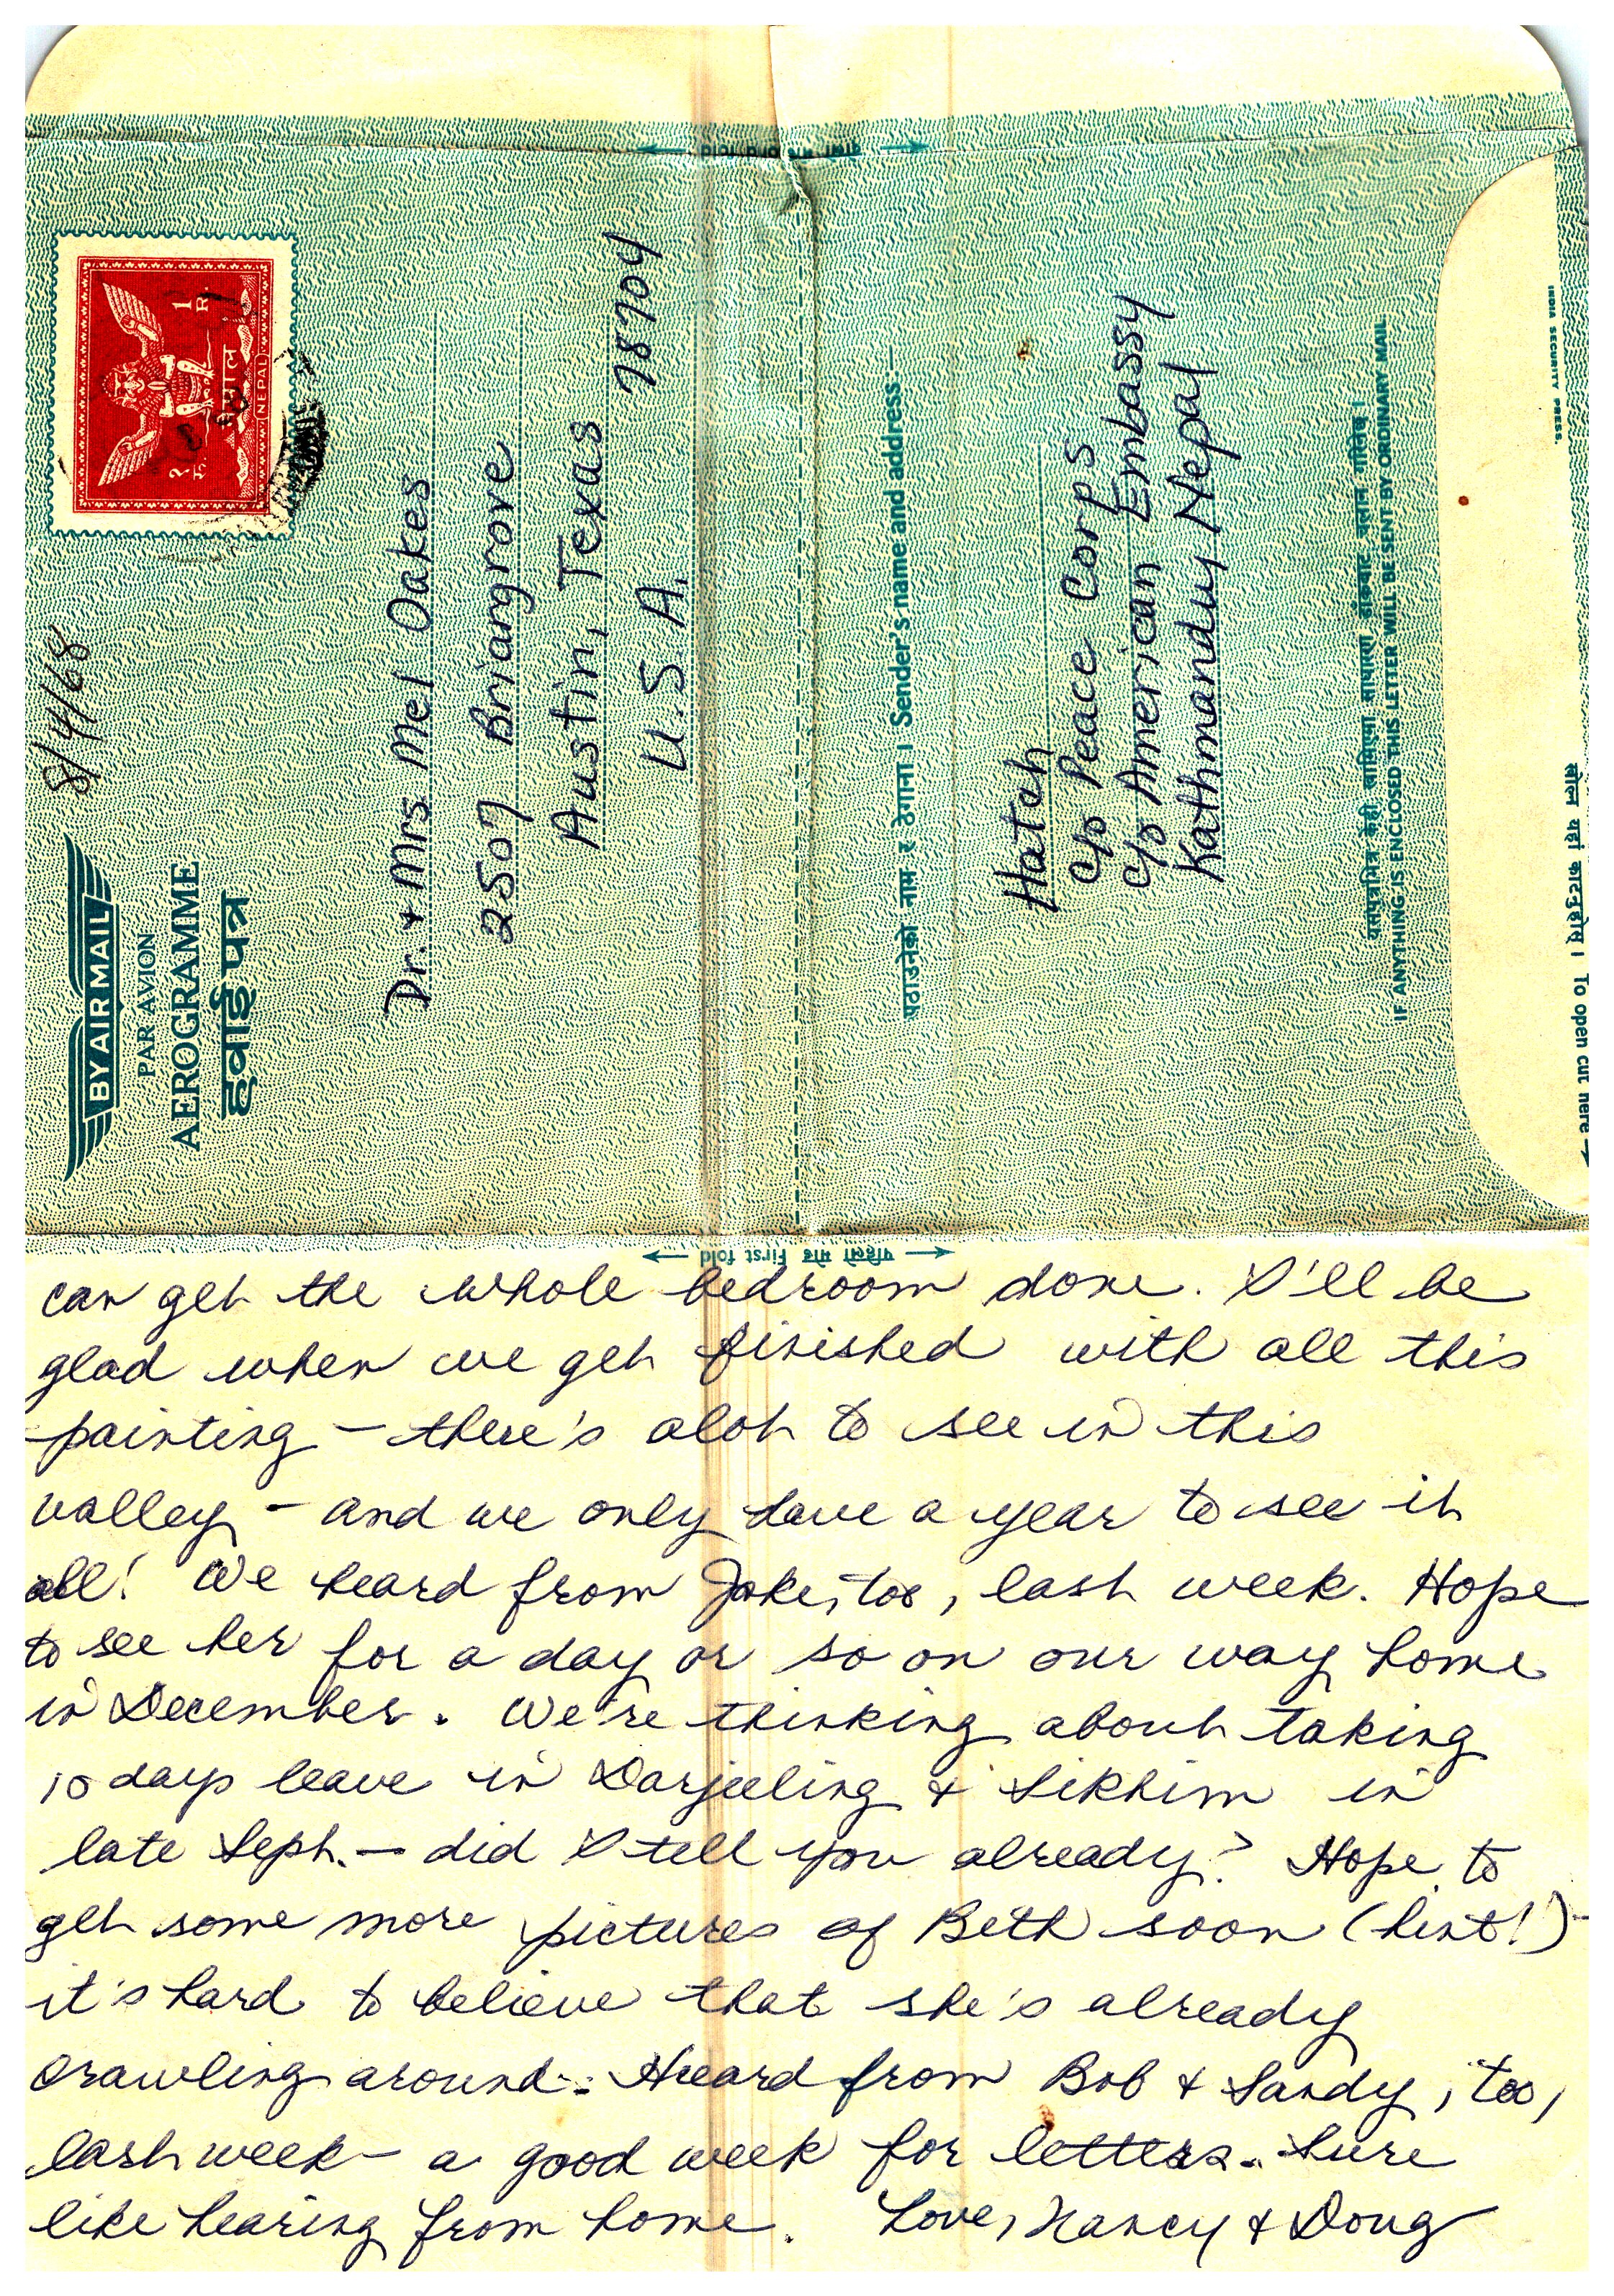 दोस्रो मोड 2nd fold
नेपाल
NEPAL
१
रु.
1
R.
8/4/68
BY AIR MAIL
PAR AVION
AEROGRAMME
हवाई पत्र
Dr. + Mrs Mel Oakes
2507 Briargrove
Austin, Texas 78704
U.S.A.
पठाउनेको नाम र ठेगाना । Sender's name and address:—
Hatch
c/o Peace Corps
c/o American Embassy
Kathmandu, Nepal
यसपत्रभित्र केही राखिएमा साधारण डाँकबाट चलान गरिनेछ ।
IF ANYTHING IS ENCLOSED THIS LETTER WILL BE SENT BY ORDINARY MAIL
INDIA SECURITY PRESS.
खोल्न यहां काट्नुहोस् । To open cut here
पहिलो मोड First fold
can get the whole bedroom done. I'll be
glad when we get finished with all this
painting – there's alot to see in this
valley – and we only have a year to see it
all! We heard from Jake, too, last week. Hope
to see her for a day or so on our way home
in December. We're thinking about taking
10 days leave in Darjeeling & Sikkim in
late Sept. – did I tell you already? Hope to
get some more pictures of Beth soon (hint!) –
it's hard to believe that she's already
crawling around. Heard from Bob & Sandy, too,
last week – a good week for letters. Sure
like hearing from home. Love, Nancy & Doug